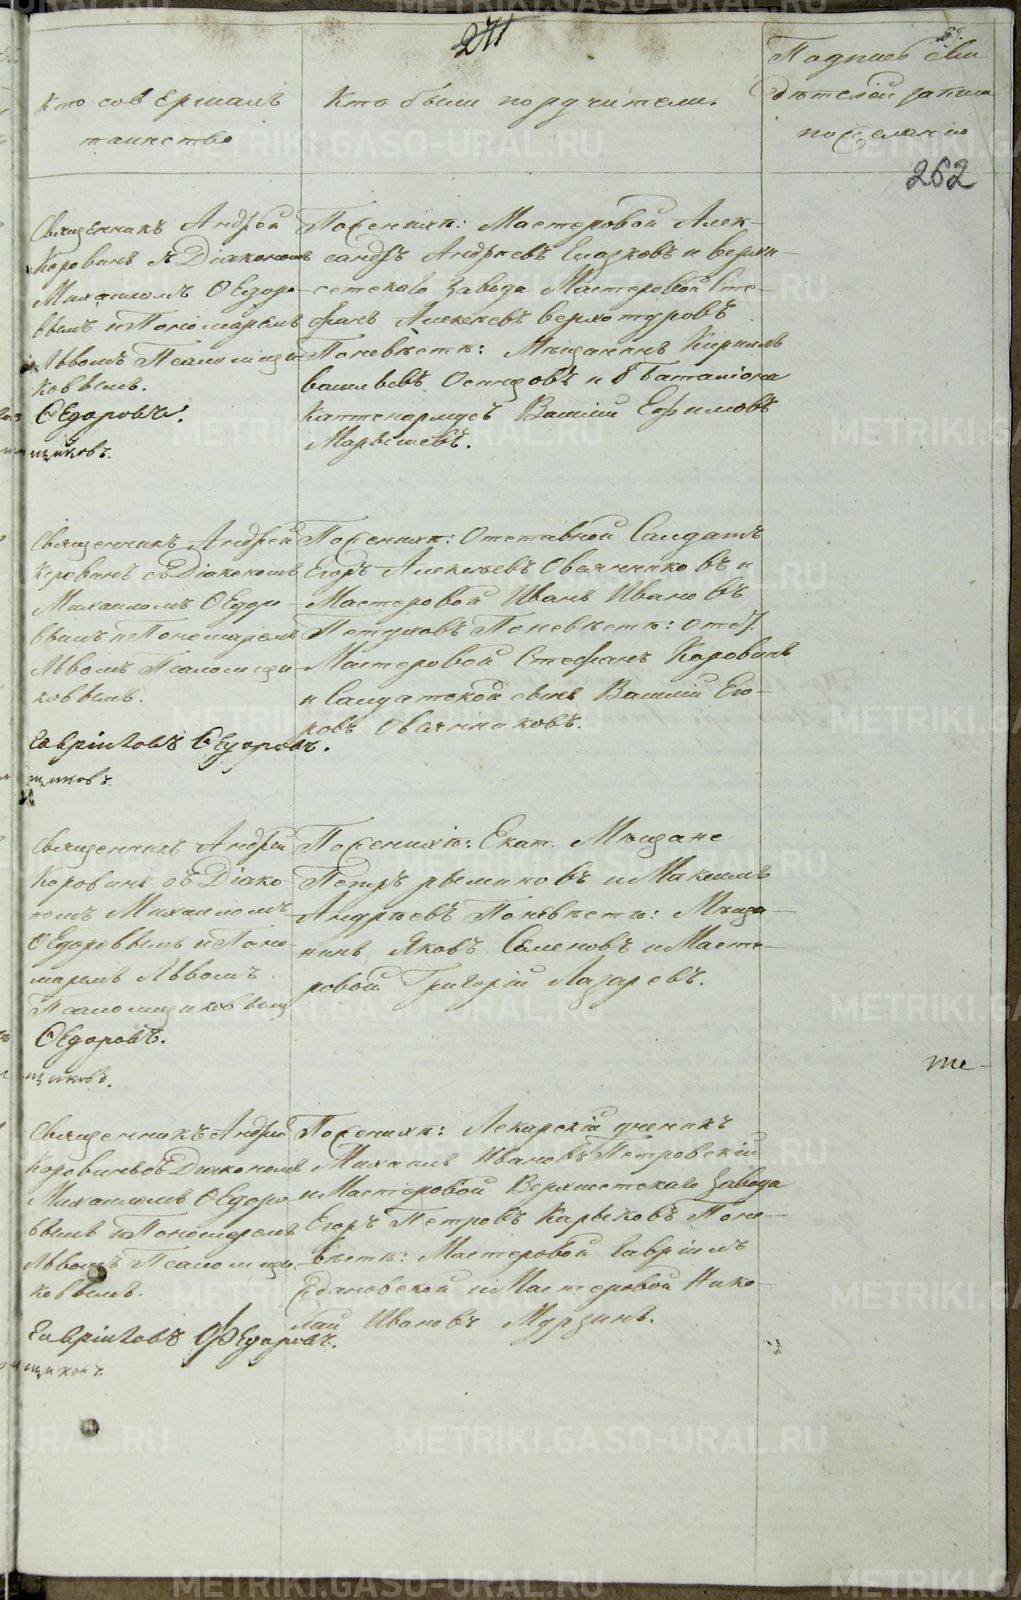 271
Кто совершалъ
таинство
Кто были поручители.
Подпись сви
дѣтелей записи
по желанію
262
Священникъ Андрей
Коровинъ съ Діакономъ
Михаиломъ Ѳедоро-
вымъ и Пономаремъ
Львомъ Псаломщи-
ковымъ.
Ѳедоровъ.
щиковъ.
По женихѣ: Мастеровой Алек-
сандръ Андреевъ Глазковъ и верхи-
сетскаго завода Мастеровой Сте-
фанъ Алексеевъ верхотуровъ
По невѣстѣ: Мѣщанинъ Кирилъ
васильевъ Осинцовъ и 8 баталіона
Каптенармусъ Василій Ефимовъ
Священникъ Андрей
Коровинъ съ Діакономъ
Михаиломъ Ѳедоро-
вымъ и Пономаремъ
Львомъ Псаломщи
ковымъ.
Гавріиловъ Ѳедоровъ.
щиковъ.
По женихѣ: Отставной Салдатъ
Егоръ Алексѣевъ Овчинниковъ и
Мастеровой Иванъ Ивановъ
Петуховъ По невѣстѣ:
Мастеровой Стефанъ Коровинъ
и Салдатской сынъ Василій Его-
ровъ Овчинниковъ.
Священникъ Андрей
Коровинъ съ Діако-
номъ Михаиломъ
Ѳедоровымъ и Поно-
маремъ Львомъ
Псаломщиковымъ
Ѳедоровъ.
щиковъ.
По женихѣ: Екат. Мѣщане
Петръ рыминовъ и Максимъ
Андреевъ По невѣстѣ: Мѣща-
нинъ Яковъ Семеновъ и Масте-
ровой Григорій Лазаревъ.
те
Священникъ Андрей
Коровинъ съ Діакономъ
Михаиломъ Ѳедоро
вымъ и Пономаремъ
Львомъ Псаломщи-
ковымъ.
Гавріиловъ Ѳедоровъ.
щиковъ.
По женихѣ: Лекарскій ученикъ
Михаилъ Ивановъ Петровскій
и Мастеровой Верхисетскаго завода
Егоръ Петровъ Карыковъ По не-
вѣстѣ: Мастеровой Гавріилъ
и Мастеровой Нико-
лай Ивановъ Мурзинъ.
METRIKI.GASO-URAL.RU